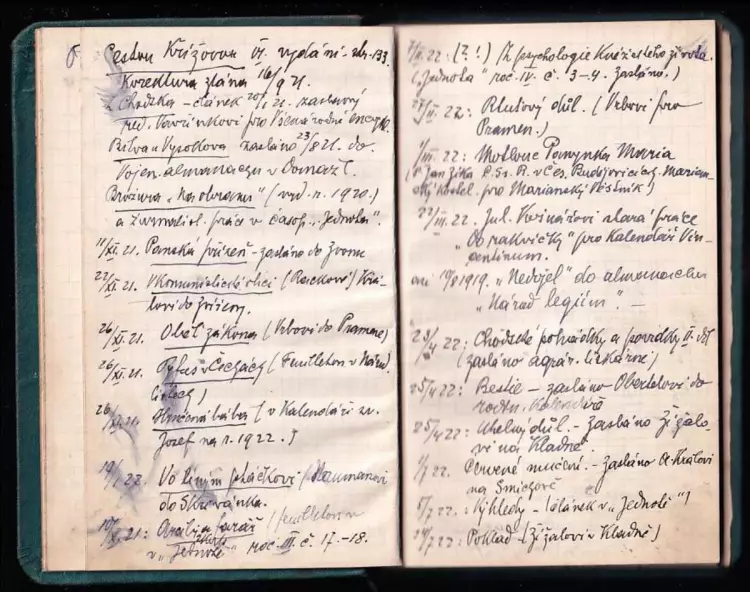 Cestou Křížovou II. vydání - str. 133.
Korektura zláma 16/9 21.
Chodska - článek 20/8 21. zaslaný
red. Vavřínkovi pro Všenárodní encykl.
Bitva u Vysokova zasláno 23/8 21. do
Vojen. almanachu v Domažl.
Brožura "Na obranu" (vyd. r. 1920.)
a žurnalist. práce v časop. "Jednota".
11/XI. 21. Panská přízeň - zasláno do Zvonu
22/XI. 21. V komunistické obci (Rackovi) Krá-
lovi do
26/XI. 21. Oběť zákona (Vrbovi do Pramene)
26/XI. 21. v Čechách (Feuilleton v Nár.
listech)
26/XI. 21. bába (v Kalendáři sv.
Josef na r. 1922.)
19/1 22. ptáčkovi / Naumanovi
do Skřivánka.
10/X. 21: farář / feuilleton
v "Jednotě" roč. III. č. 17.-18.
7/II. 22: (?!) Z psychologie Kněžského života.
("Jednota" roč. IV. č. 3-4. zasláno.)
27/II. 22: Rtuťový důl. (Vrbovi pro
Pramen.)
1/III. 22: Maria
(P. Jan Zika C. Ss. R. v Čes. Budějovicích. Marian-
ský kostel. pro Marianský Věstník)
22/III. 22. Jul. Kvinárovi slavá práce
"Do rakvičky" pro Kalendář Vin-
centinum.
ani 10/8 1919. "Nedojel" do almanachu
"Národ legiím". -
23/4 22: Chodské pohádky a povídky II. díl
(zasláno agrár. tiskárně)
25/4 22: Bestie - zasláno do
rodin. Kalendáře
25/4 22: Uhelný důl. - zasláno Žižalo-
vi na Kladně.
1/7 22. Červené mučení. - zasláno A. Královi
na Smíchově
5/7 22.: Výhledy - článek v "Jednotě"!
14/7 22: Poklad - (Žižalovi v Kladně)